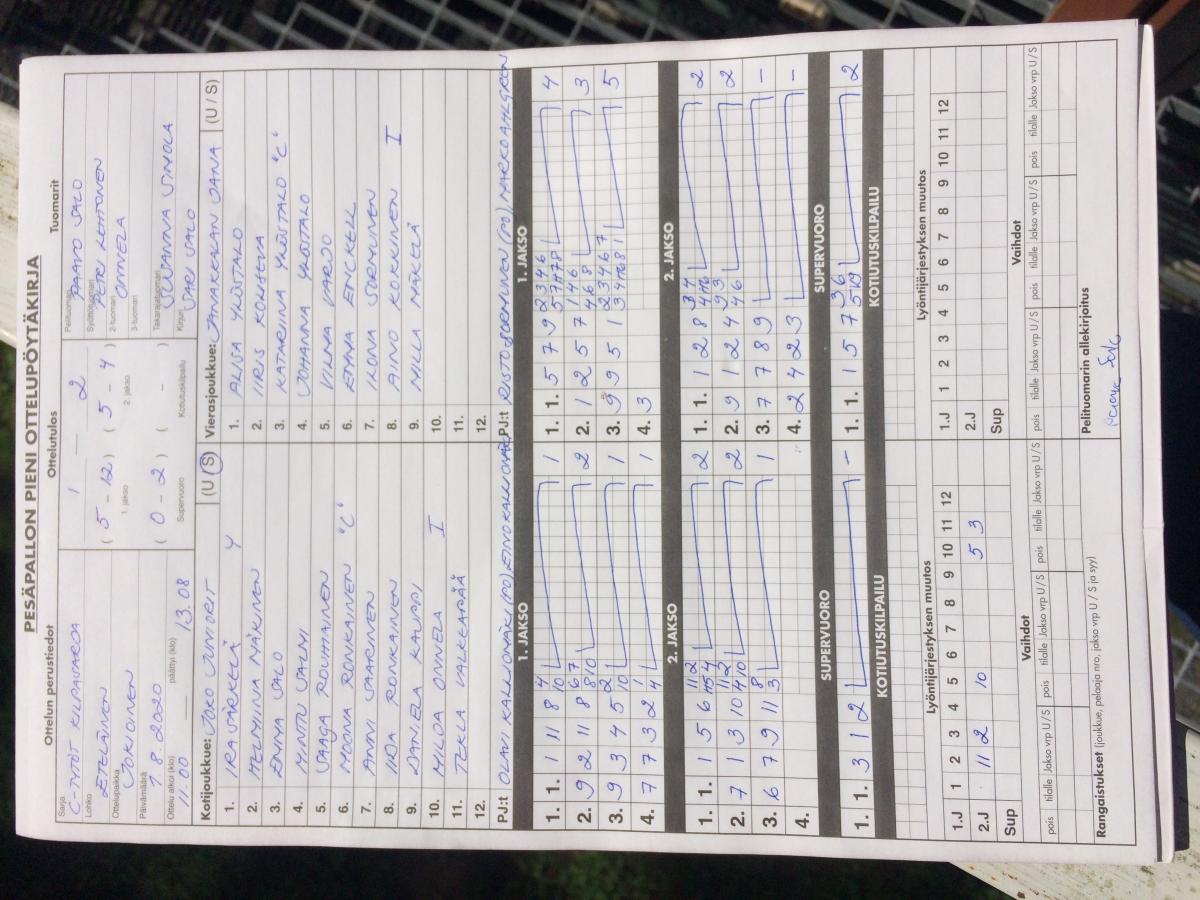 PESÄPALLON PIENI OTTELUPÖYTÄKIRJA
Ottelun perustiedot Ottelutulos Tuomarit
Sarja C-TYTÖT KILPASARJA
Lohko ETELÄINEN
Ottelupaikka JOKIOINEN
Päivämäärä 7.8.2020
Ottelu alkoi (klo) 11.00 päättyi (klo) 13.08
1 — 2
( 5 - 12 ) ( 5 - 4 )
1. jakso 2. jakso
( 0 - 2 ) ( - )
Supervuoro Kotiutuskilpailu
Pelituomari PAAVO SALO
Syöttötuomari PETRI LEHTONEN
2-tuomari ONNELA
3-tuomari
Takarajatuomari SUSANNA SIMOLA
Kirjuri SARI SALO
Kotijoukkue: JOKO JUNIORIT (U / S)
1. IRA SÄRKELÄ Y
2. HELMIINA MÄKINEN
3. EMMA SALO
4. MINTTU SALMI
5. SAAGA ROUHIAINEN
6. MOONA RONKAINEN "C"
7. ANNI SAARINEN
8. IIDA RONKAINEN
9. DANIELA KAUPPI
10. MILJA ONNELA I
11. TEKLA VALKEAPÄÄ
12.
Vierasjoukkue: (U / S)
1. ALISA YLÖSTALO
2. IIRIS
3. KATARIINA YLÖSTALO "C"
4. JOHANNA YLÖSTALO
5. VILMA VARJO
6. EMMA EMCKELL
7. ILONA SORMUNEN
8. AINO KOKKINEN I
9. MILLA MÄKELÄ
10.
11.
12.
PJ:t OLAVI
PJ:t RISTO SORMUNEN (PO) MARKKO AHLGREN
1. JAKSO 1. JAKSO
1. 1. 1 11 8 4 10 1
2. 9 2 11 8 6 7 8 10 2
3. 9 3 4 5 2 10 1
4. 7 7 3 2 1 4 1
1. 1. 5 7 9 2 3 4 6 5 7 8 4
2. 1 2 5 7 1 4 6 4 6 8 3
3. 9 9 5 1 2 3 4 6 7 5
4. 3
2. JAKSO 2. JAKSO
1. 1. 1 5 6 11 2 2
2. 7 1 3 10 11 2 4 10 2
3. 6 7 9 11 8 3 1
4.
1. 1. 1 2 8 3 4 2
2. 9 1 2 4 9 3 4 6 2
3. 7 7 8 9 -
4. 2 4 2 3 -
SUPERVUORO SUPERVUORO
1. 1. 3 1 2 -
1. 1. 1 5 7 3 6 2
KOTIUTUSKILPAILU KOTIUTUSKILPAILU
Lyöntijärjestyksen muutos Lyöntijärjestyksen muutos
1.J 1 2 3 4 5 6 7 8 9 10 11 12
2.J 11 2 10 5 3
Sup
1.J 1 2 3 4 5 6 7 8 9 10 11 12
2.J
Sup
Vaihdot Vaihdot
pois tilalle Jakso vrp U / S pois tilalle Jakso vrp U / S pois tilalle Jakso vrp U / S
pois tilalle Jakso vrp U / S pois tilalle Jakso vrp U / S pois tilalle Jakso vrp U / S
Rangaistukset (joukkue, pelaaja nro, jakso vrp, U / S ja syy)
Pelituomarin allekirjoitus